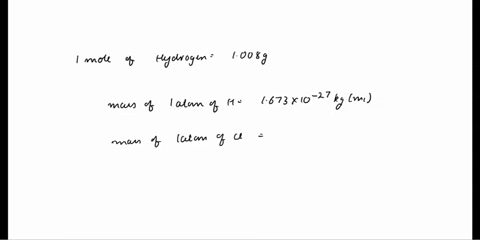 1 mole of Hydrogen = 1.008g
mass of 1 atom of H = 1.673 × 10⁻²⁷ kg (m₁)
mass of 1 atom of Cl =